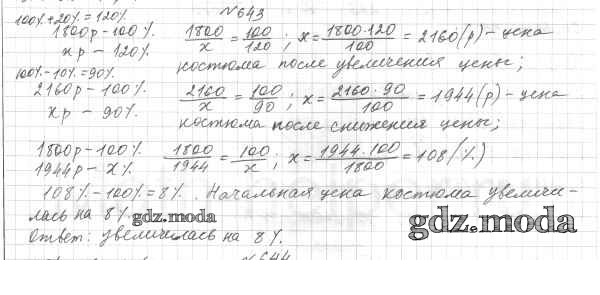 N643
100%+20%=120%
1800р-100% 1800/x = 100/120 ; x = 1800·120/100 = 2160(р)-цена
xр - 120% костюма после увеличения цены;
100%-10%=90%
2160р-100% 2160/x = 100/90 ; x = 2160·90/100 = 1944(р)-цена
xр - 90% костюма после снижения цены;
1800р-100% 1800/1944 = 100/x ; x = 1944·100/1800 = 108(%)
1944р - x%
108%-100%=8%. Начальная цена костюма увеличи-
лась на 8%.
gdz.moda
gdz.moda
Ответ: увеличилась на 8%.
N644